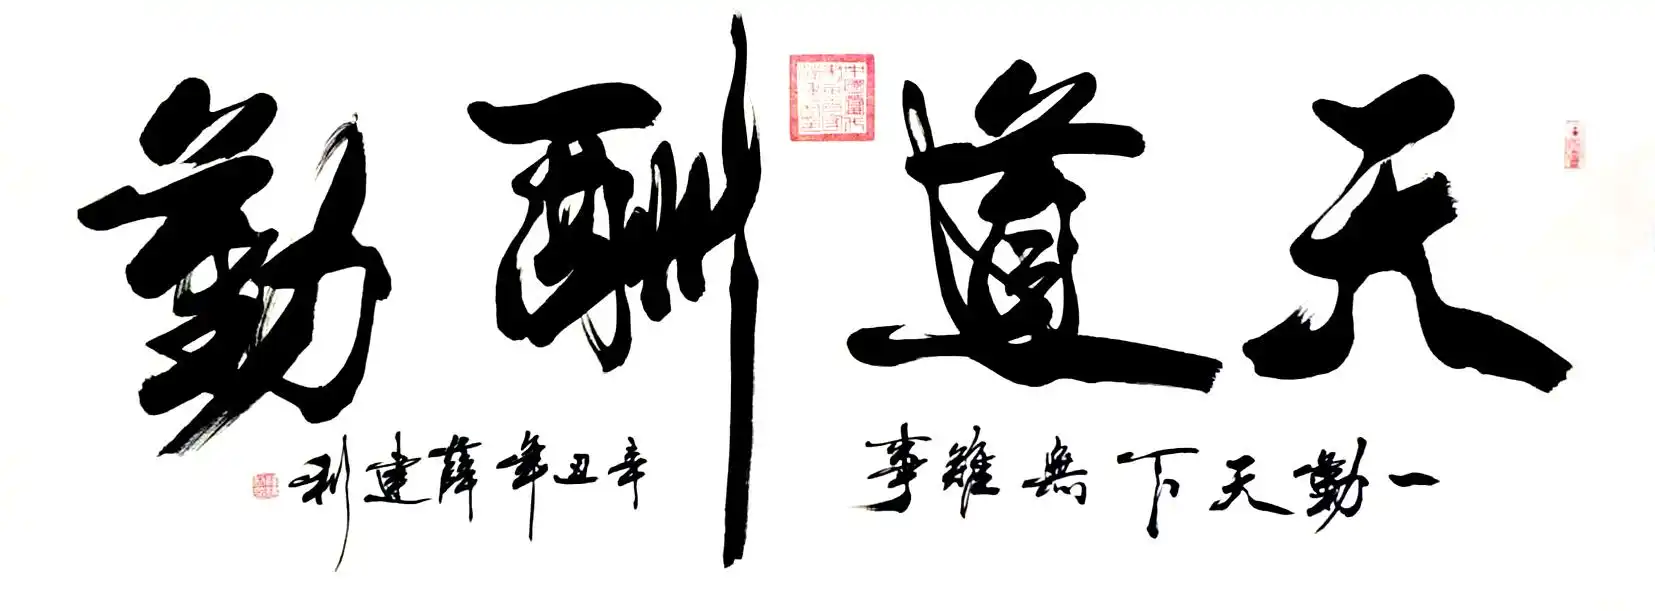 天道酬勤
一勤天下無難事
辛丑年薛建利